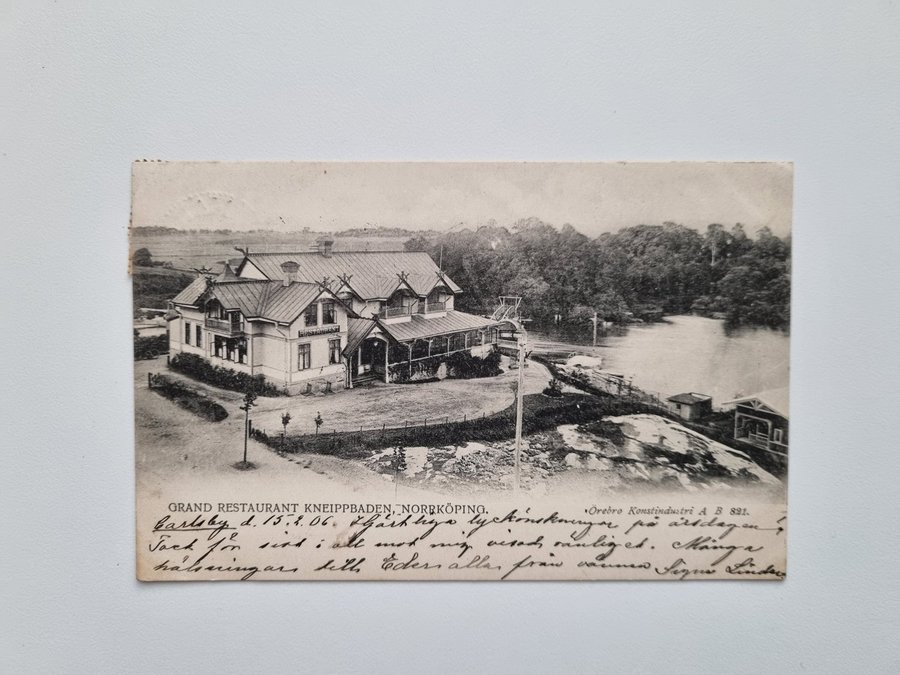 RESTAURANT
GRAND RESTAURANT KNEIPPBADEN, NORRKÖPING.
Örebro Konstindustri A B 821.
Carlsby d. 15.2.06. Hjärtliga lyckönskningar på årsdagen!
Tack för sist i allt mot mig visad vänlighet. Många
hälsningar till Eder alla från vännen Signe Linder